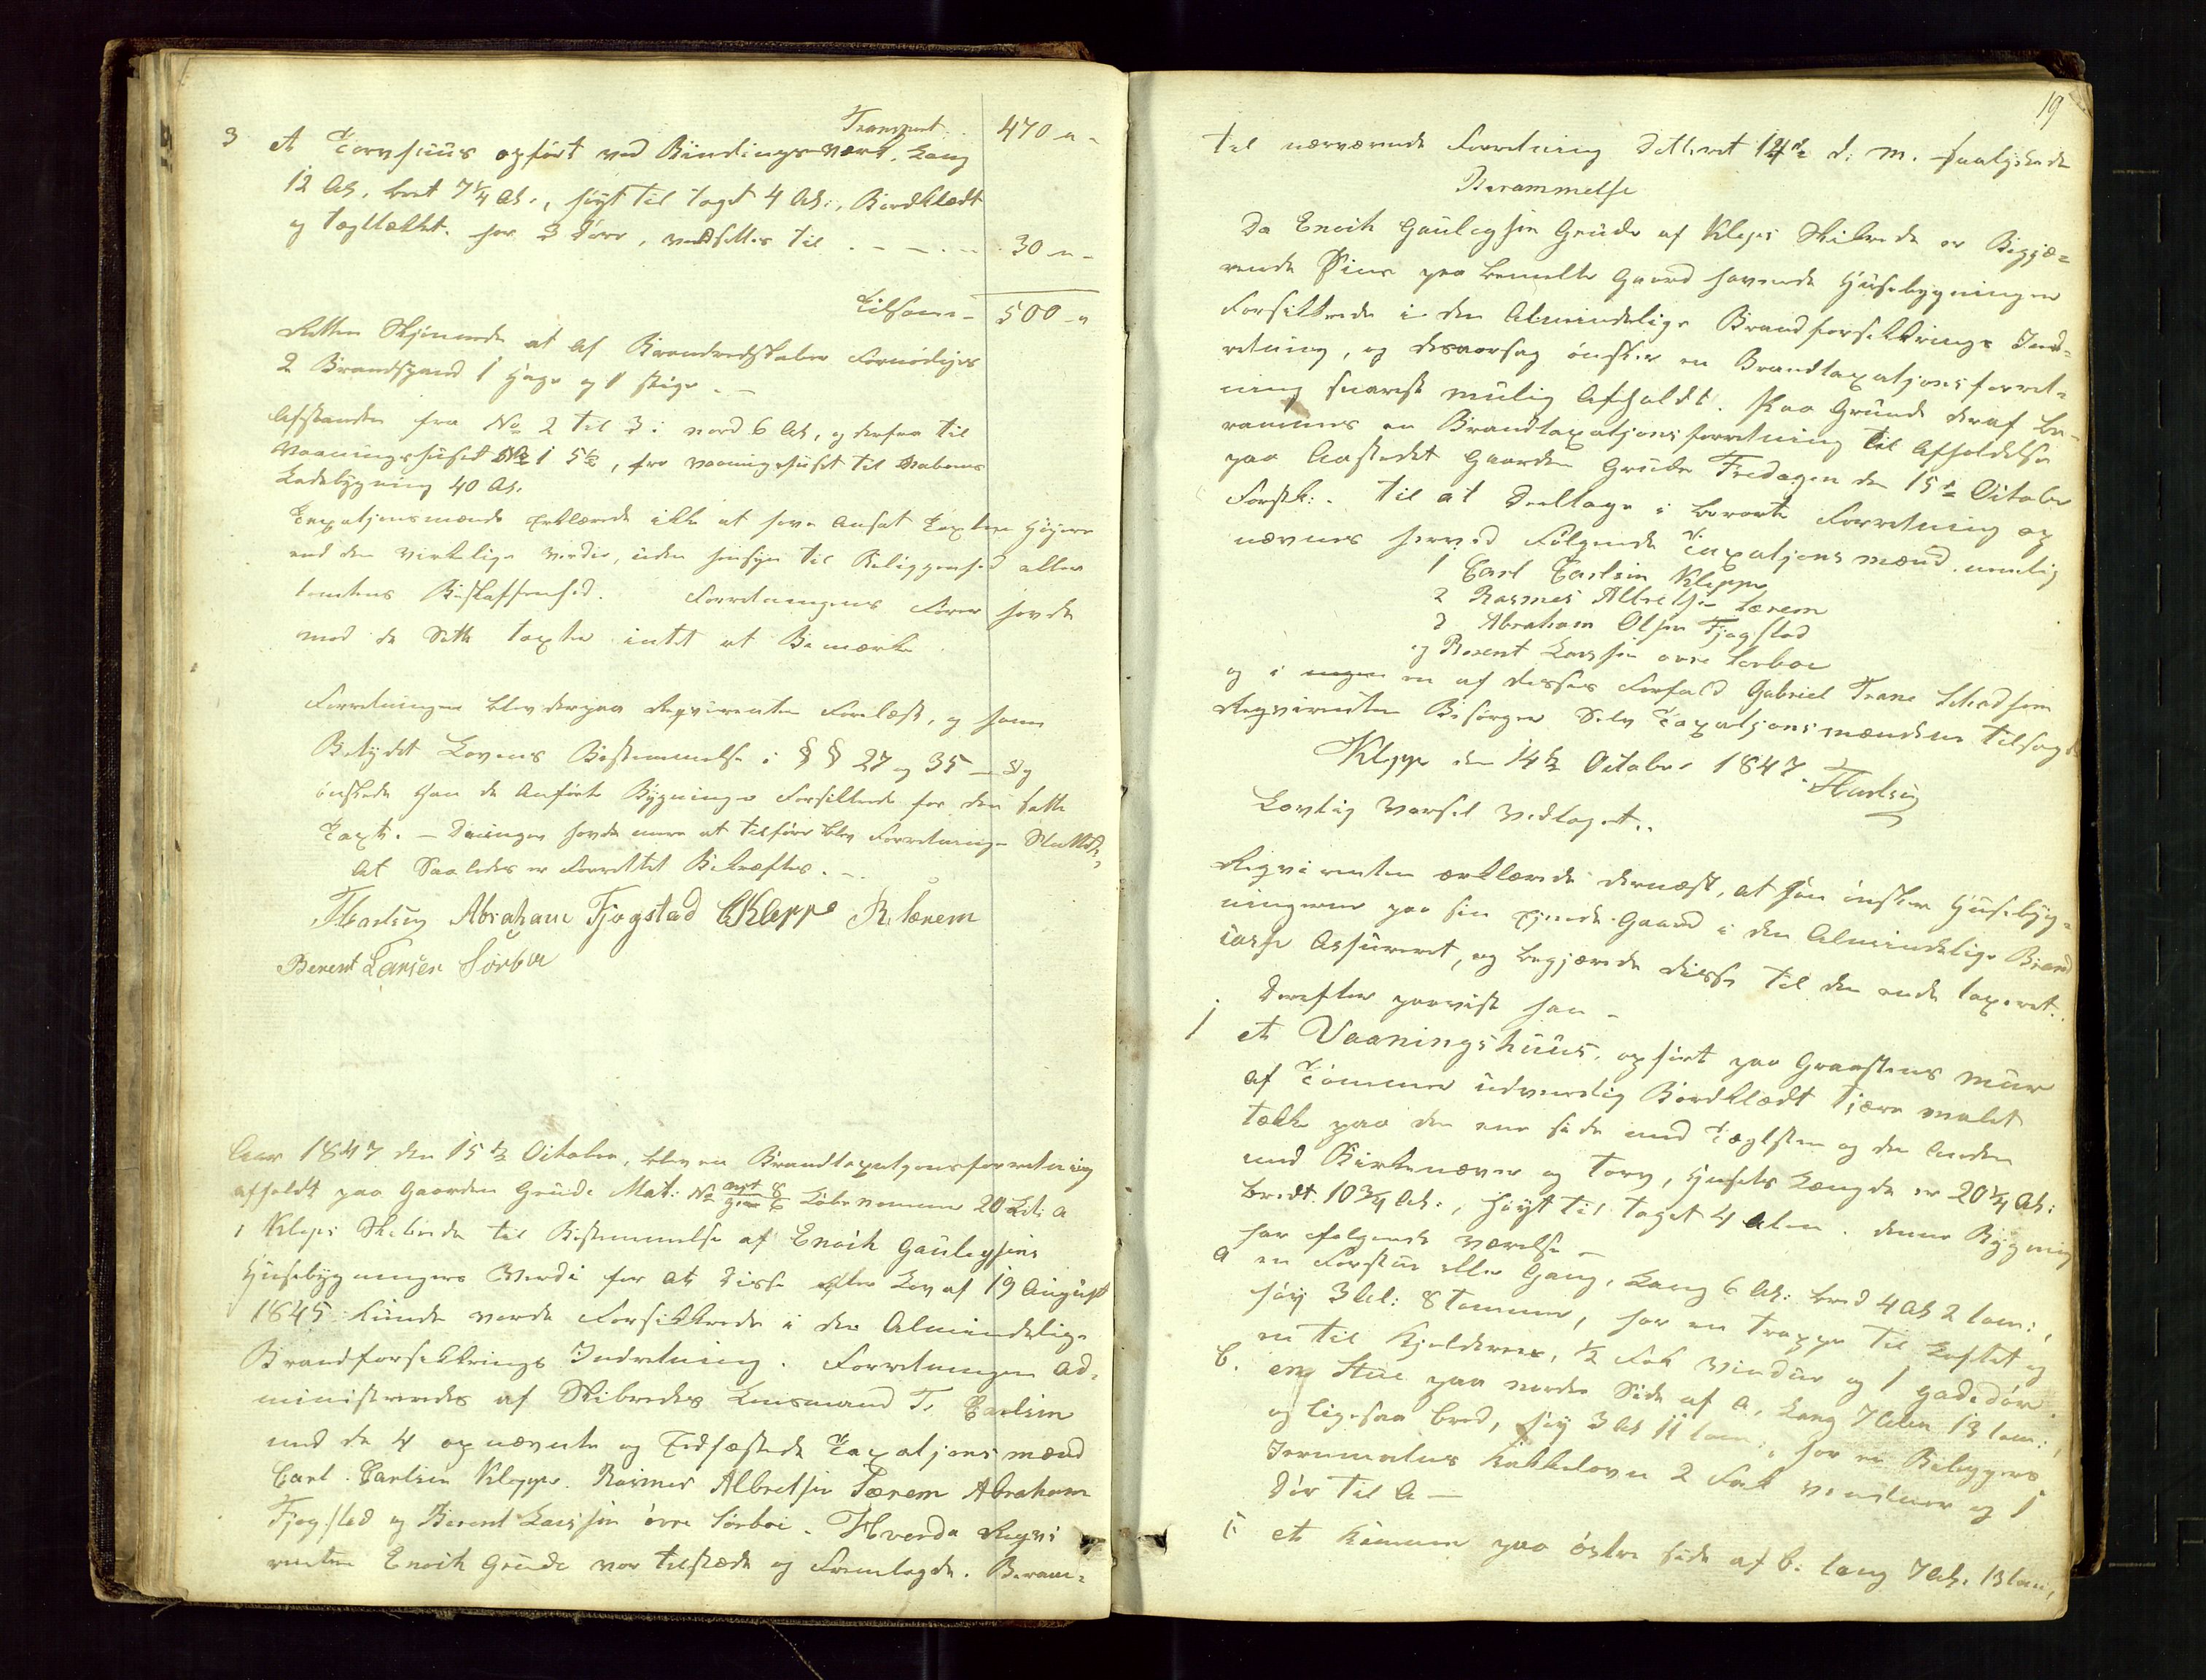 Transport 470 „ -
3 et Torvhuus opført ved Bindingsværk, Lang
12 Al., bret 7 1/4 Al., høyt til taget 4 Al., Bordklædt
og tagtækket. har 3 Dører, værdsettes til - - - . 30 „ -
Tilsam - 500 „
Retten Skjønnede at af Brandredskaber fornødiges
2 Brandspand 1 Hage og 1 stige. -
Afstanden fra No 2 til 3 i nord 6 Al, og derfra til
Vaaningshuset No 1 5 1/2, fra vaaningshuset til Naboens
Ladebygning 40 Al.
Taxationsmændene erklærede ikke at have Ansat Taxten høyere
end den virkelige Verdie, uden hensyn til Beliggenhed eller
tomtens Beskaffenhed. Forretningens fører havde
mod de Satte taxter intet at Bemærke
Forretningen blev derpaa Reqvirenten Forelæst, og ham
Betydet Lovens Bestemmelse i § § 27 og 35 - og
ønskede han de Anførte Bygninger Forsikkrede for den satte
Taxt. - Da ingen havde mere at tilføre blev Forretningen Sluttet,
At Saaledes er Forrettet Bekræftes. -
TCarlsen Abraham Fjogstad CKleppe R. Tærem
Berent Larsen Sørbøe
Aar 1847 den 15de October, blev en Brandtaxationsforretning
afholdt paa Gaarden Grude Mat: No nyt 8 gm 6 Løbenummer 20 Lit: a
i Kleps Skibrede til Bestemmelse af Enoch Gaulegsens
Huusebygningers Verdi for at disse efter Lov af 19 August
1845 kunde vorde Forsikkrede i den Almindelige
Brandforsikkrings Indretning. Forretningen Ad-
ministreredes af Skibredes Lensmand T. Carlsen
med de 4 opnævnte og Eedfæstede Taxationsmænd
Carl Carlsen Kleppe. Rasmus Albretsen Tærem Abraham
Fjogstad og Berent Larssen øvre Sørboe. - Hvorda Reqvi
renten Enoch Grude var tilstæde og Fremlagde. Beram-
19
til nærværende Forretning Dateret 14de d: M. saalydende
Berammelse
Da Enoch Gaulegsen Grude af Kleps Skibrede er Begjæ-
rende Sine paa bemelte Gaard havende Huusebygninger
Forsikkrede i den Almindelige Brandforsikkrings Ind-
retning, og desaarsag ønsker en Brandtaxationsforret-
ning snarest mulig Afholdt. Paa Grund deraf be-
rammes en Brandtaxationsforretning til Afholdelse
paa Aastedet Gaarden Grude Fredagen den 15de October
Førstk: - til at Deeltage i berørte Forretning op
nævnes herved Følgende Taxationsmænd. nemlig
1 Carl Carlsen Kleppe
2 Rasmus Albretsen Tærem
3 Abraham Olsen Fjogstad
og Berent Larssen øvre Sørboe
og i en af disses Forfald Gabriel Trane
Reqvirenten Besørger Selv Taxationsmændene tilsagde
Klepp den 14de October 1847. TCarlsen
Lovlig Varsel Vedtaget..
Reqvirenten erklærede dernæst, at han ønsker Huusebyg-
ningerne paa sin Ejende Gaard i den Almindelige Brand
casse Assureret, og begjærede disse til den ende taxeret..
Derefter paaviste han -
1 et Vaaningshuus, opført paa Graasteens muur
af Tømmer udvendig Bordklædt tjære malet
tække paa den ene side med Taglsten og den Anden
med Birkenæver og torv, Husets Længde er 20 1/4 Al:
bredt 10 3/4 Al:, høyt til taget 4 Alen. denne Bygning
har følgende Værelse -
a en Forstue eller Gang, Lang 6 Al: bred 4 Al 2 tom:,
høy 3 Al: 8 tommer, har en trappe til Loftet og
en til Kjelderen, 1/2 Fak Vindue og 1 Gadedør.
b. en Stue paa nordre Side af a, Lang 7 Alen 13 tom:,
og ligesaa bred, høy 3 Al 11 tom:, har en Beleggers
Jernmalms Kakkelovn 2 Fak Vinduer og 1
Dør til a -
c: et Kammer paa østre side af b: lang 7 Al. 13 tom,